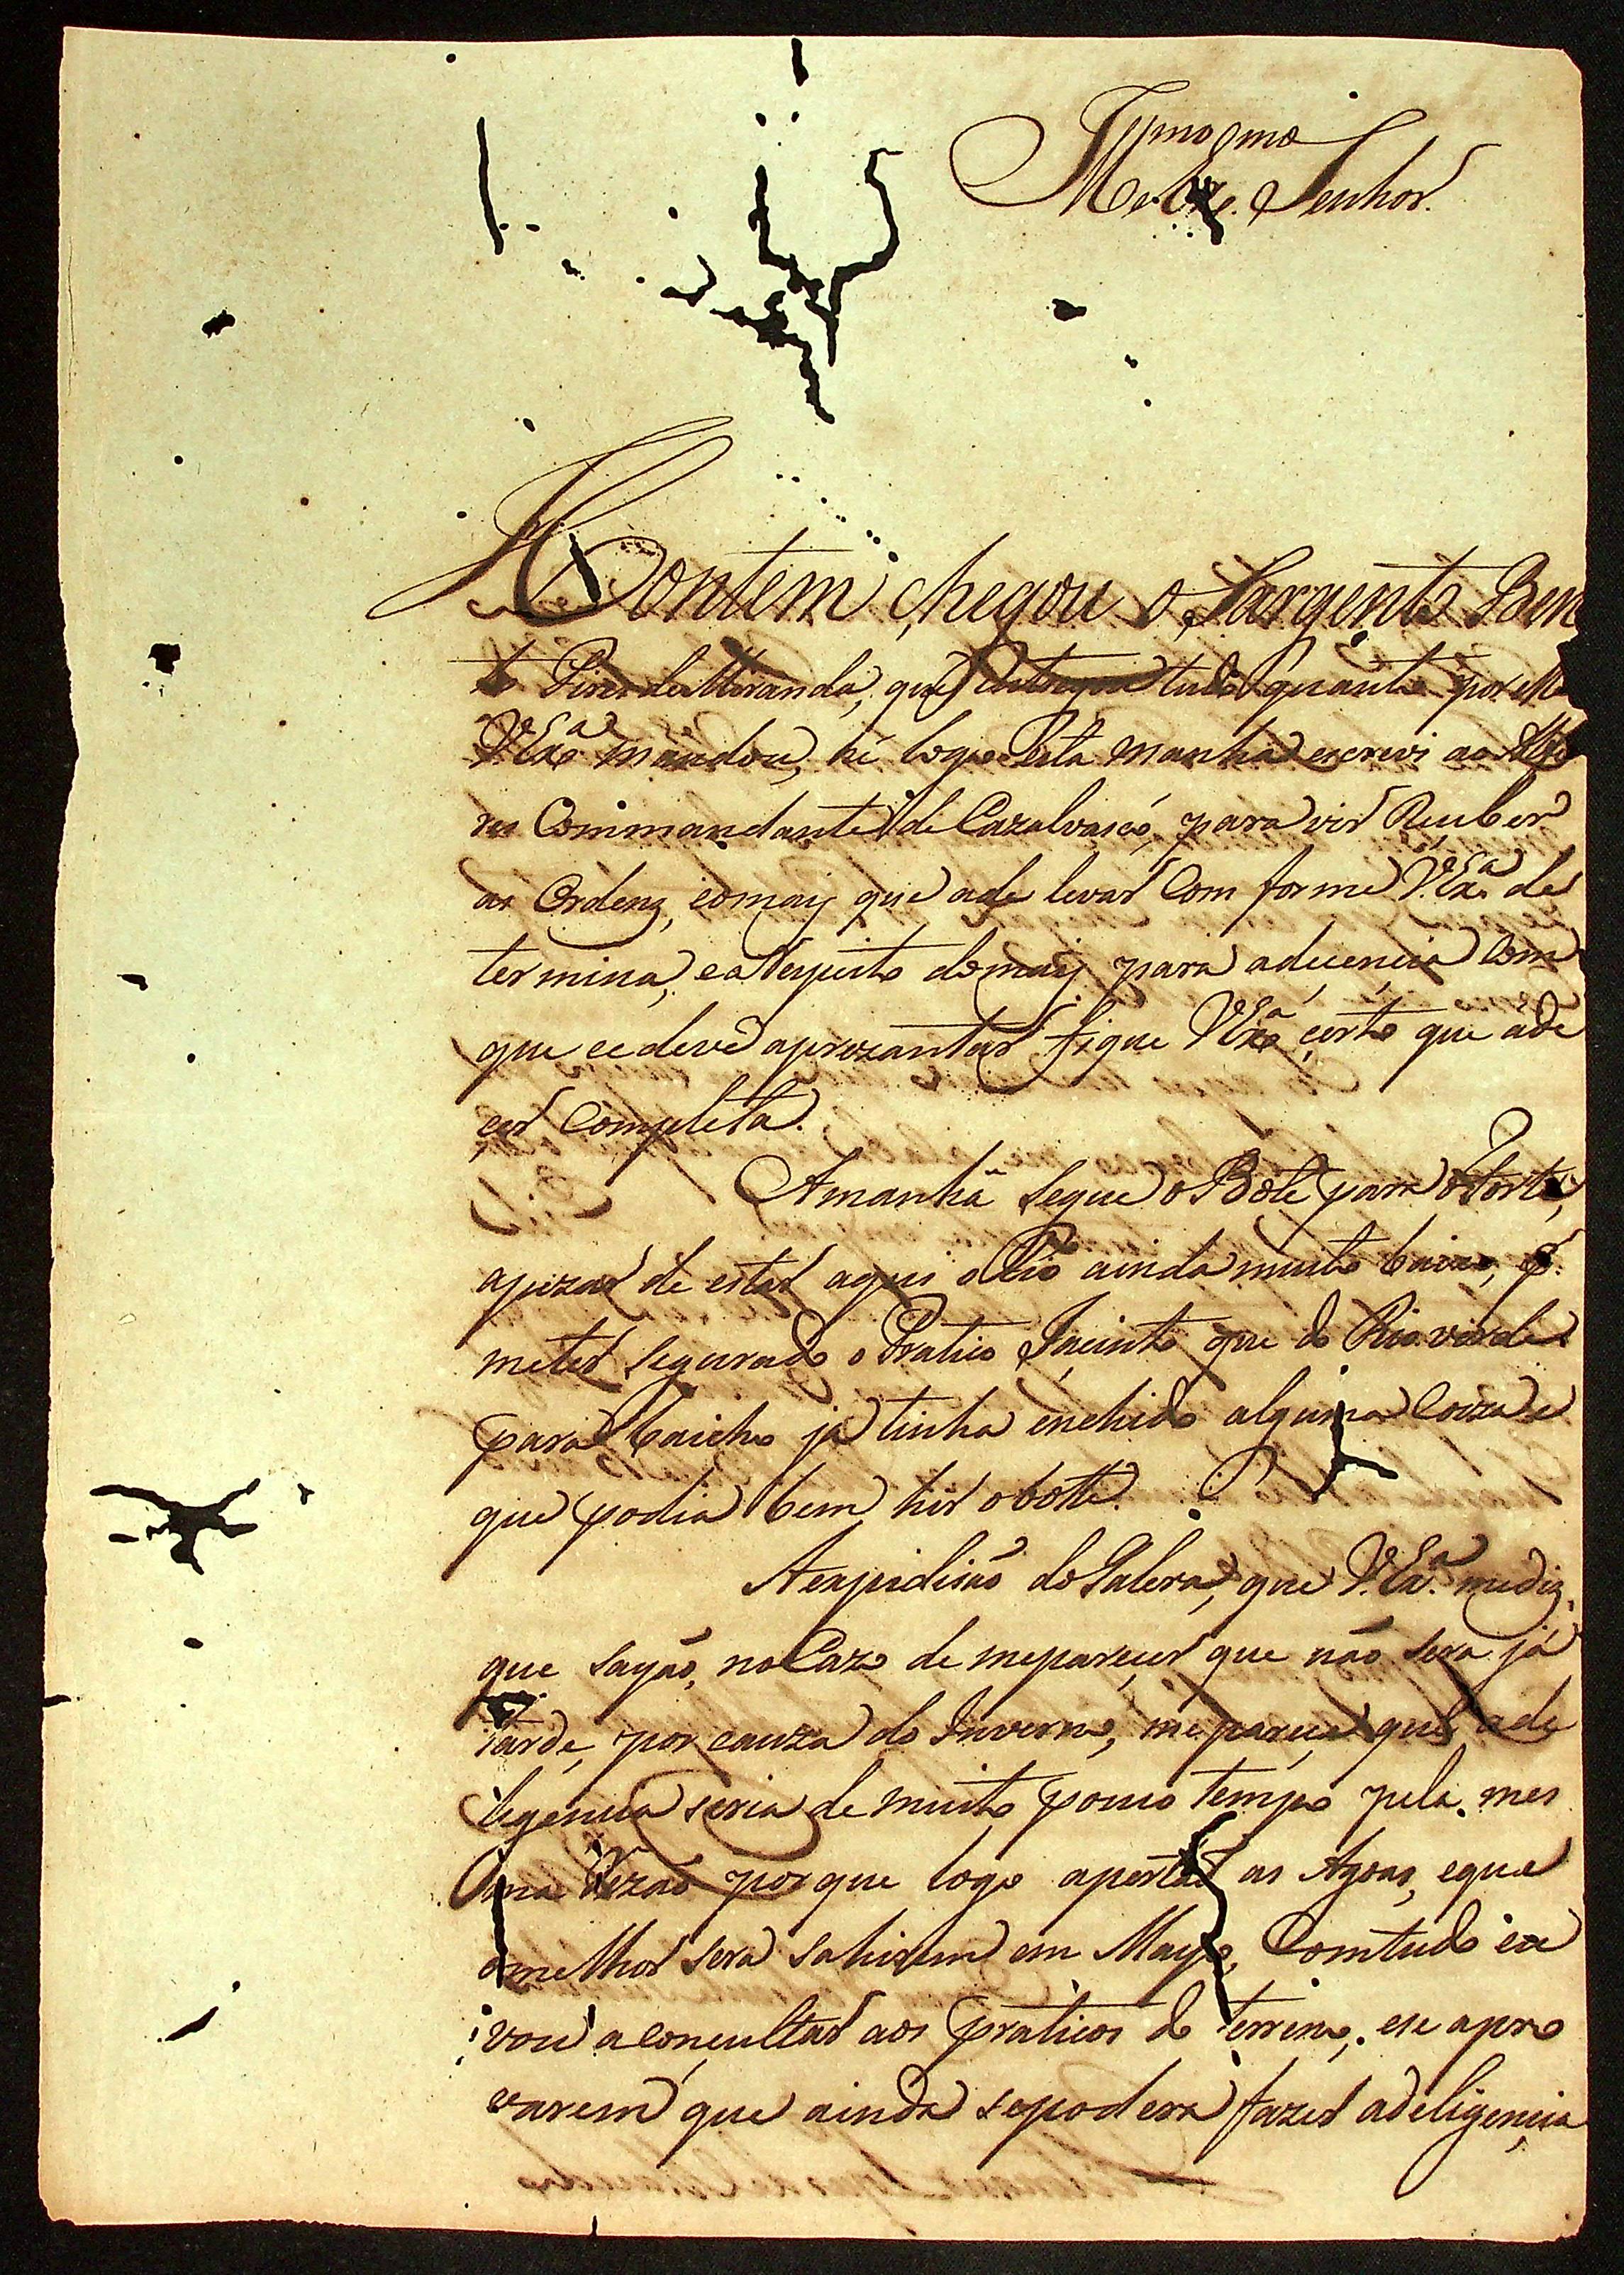 Illmo e Exmo Senhor.
Hontem chegou o Sargento Ben
to Pires de Miranda, que entregou tudo quanto por elle
V. Exa. mandou, hé logo esta manhã escrevi ao Alfe
res Commandante de Cazalvasco, para vir Receber
as Ordenz, eomais que ade levar Com forme V. Exa. de
termina, ea Respeito domais para adecencia Com
que ce deve aprezantar fique V. Exa. certo que ade
cer Completa.
Amanhã segue o Bote para o Forte,
apezar de estar aqui o Rio ainda muito baixo, p.
meter segurado o Pratico Jacinto que do Rio verde
para baicho ja tinha enchido alguma Couza e
que podia bem hir obote.
Aexpedicão do Galera, que V. Exa. mediz,
que sayão, no Cazo de meparecer que não sera já
tarde, por cauza do Inverno, me parece que ade
legencia seria de muito pouco tempo pela mes
ma Rezão porque logo apertão as Agoas, eque
omelhor sera sahirem em Mayo, Comtudo eu
vou aconcultar aos praticos do terreno, ese apro
varem que ainda sepodera fazer adeligencia